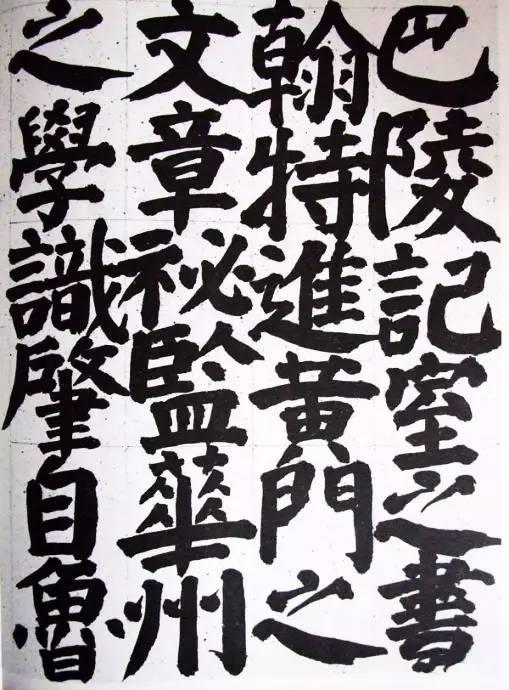 巴陵記室之書
翰特進黃門之
文章秘監華州
之學識肇自魯